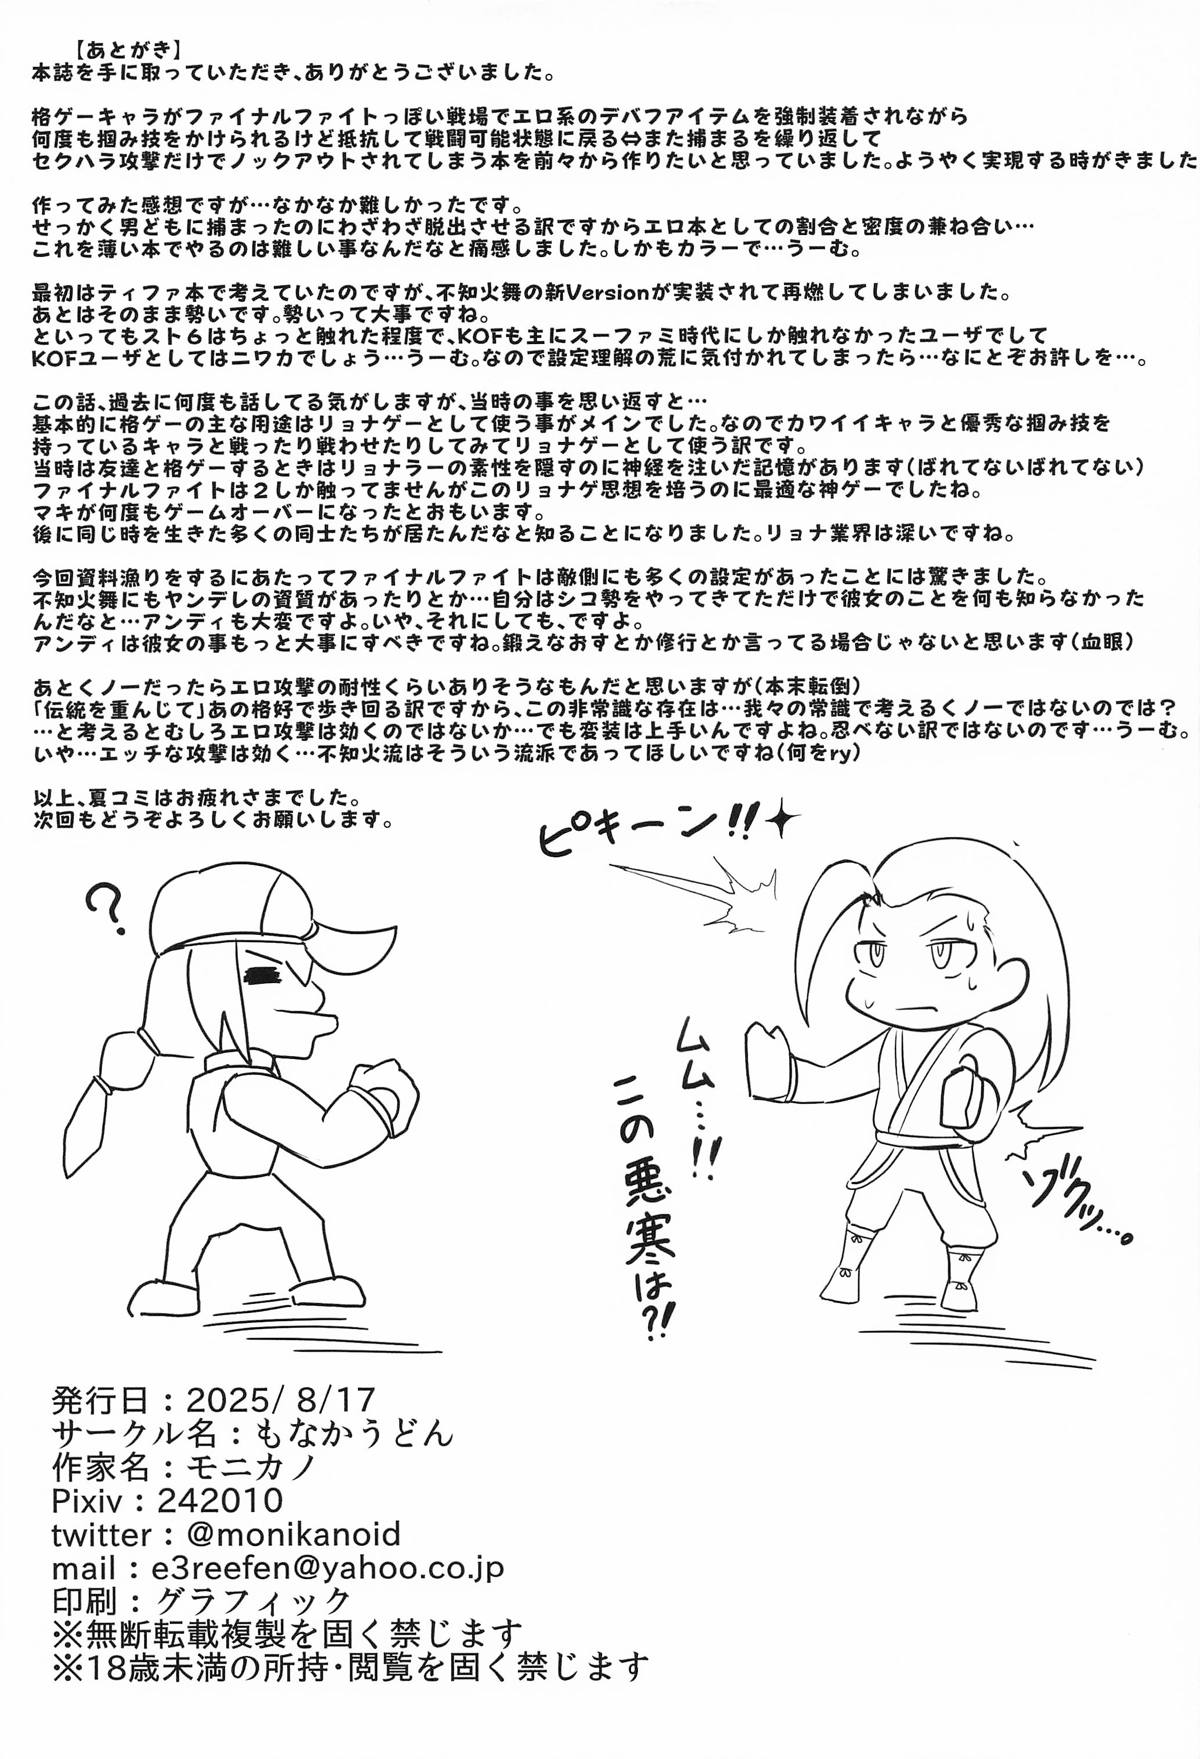 【あとがき】
本誌を手に取っていただき、ありがとうございました。
格ゲーキャラがファイナルファイトっぽい戦場でエロ系のデバフアイテムを強制装着されながら
何度も掴み技をかけられるけど抵抗して戦闘可能状態に戻る⇔また捕まるを繰り返して
セクハラ攻撃だけでノックアウトされてしまう本を前々から作りたいと思っていました。ようやく実現する時がきました
作ってみた感想ですが…なかなか難しかったです。
せっかく男どもに捕まったのにわざわざ脱出させる訳ですからエロ本としての割合と密度の兼ね合い…
これを薄い本でやるのは難しい事なんだなと痛感しました。しかもカラーで…うーむ。
最初はティファ本で考えていたのですが、不知火舞の新Versionが実装されて再燃してしまいました。
あとはそのまま勢いです。勢いって大事ですね。
といってもスト6はちょっと触れた程度で、KOFも主にスーファミ時代にしか触れなかったユーザでして
KOFユーザとしてはニワカでしょう…うーむ。なので設定理解の荒に気付かれてしまったら…なにとぞお許しを…。
この話、過去に何度も話してる気がしますが、当時の事を思い返すと…
基本的に格ゲーの主な用途はリョナゲーとして使う事がメインでした。なのでカワイイキャラと優秀な掴み技を
持っているキャラと戦ったり戦わせたりしてみてリョナゲーとして使う訳です。
当時は友達と格ゲーするときはリョナラーの素性を隠すのに神経を注いだ記憶があります(ばれてないばれてない)
ファイナルファイトは2しか触ってませんがこのリョナゲ思想を培うのに最適な神ゲーでしたね。
マキが何度もゲームオーバーになったとおもいます。
後に同じ時を生きた多くの同士たちが居たんだなと知ることになりました。リョナ業界は深いですね。
今回資料漁りをするにあたってファイナルファイトは敵側にも多くの設定があったことには驚きました。
不知火舞にもヤンデレの資質があったりとか…自分はシコ勢をやってきてただけで彼女のことを何も知らなかった
んだなと…アンディも大変ですよ。いや、それにしても、ですよ。
アンディは彼女の事もっと大事にすべきですね。鍛えなおすとか修行とか言ってる場合じゃないと思います(血眼)
あとくノーだったらエロ攻撃の耐性くらいありそうなもんだと思いますが(本末転倒)
「伝統を重んじて」あの格好で歩き回る訳ですから、この非常識な存在は…我々の常識で考えるくノーではないのでは?
…と考えるとむしろエロ攻撃は効くのではないか…でも変装は上手いんですよね。忍べない訳ではないのです…うーむ。
いや…エッチな攻撃は効く…不知火流はそういう流派であってほしいですね(何をry)
以上、夏コミはお疲れさまでした。
次回もどうぞよろしくお願いします。
ピキーン!!
?
ムム…!!
この悪寒は?!
ゾクッ…。
発行日：2025/ 8/17
サークル名：もなかうどん
作家名：モニカノ
Pixiv：242010
twitter：@monikanoid
mail：e3reefen@yahoo.co.jp
印刷：グラフィック
※無断転載複製を固く禁じます
※18歳未満の所持・閲覧を固く禁じます